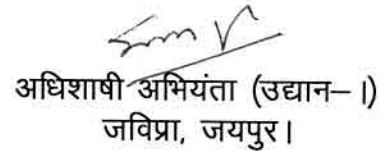 अधिशाषी अभियंता (उद्यान– ।)
जविप्रा, जयपुर।